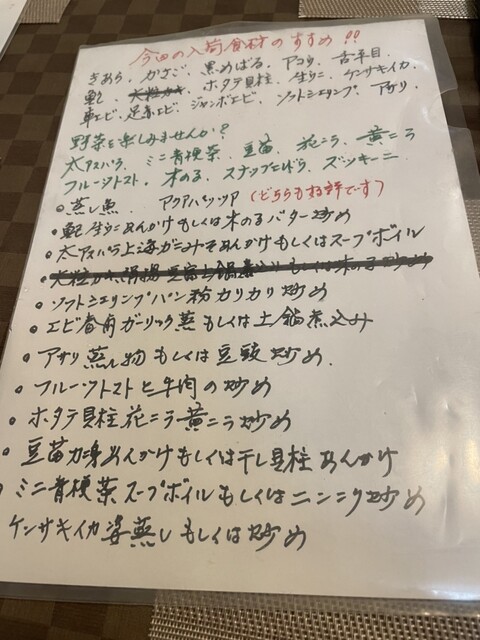 今回の入荷食材のすすめ!!
きあら、かさご、黒めばる、アコウ、舌平目、
鮑、大粒カキ、ホタテ貝柱、生ウニ、ケンサキイカ、
車エビ、足赤エビ、ジャンボエビ、ソフトシエリンプ、アサリ、
野菜を楽しみませんか?
太アスパラ、ミニ青梗菜、豆苗、花ニラ、黄ニラ
フルーツトマト、木のる、スナップえんどう、ズッキーニ
蒸し魚 アクアパッツア(どちらもお鮮です)
鮑生ウニあんかけもしくは木のるバター炒め
太アスパラ上海ガニみそあんかけもしくはスープボイル
ソフトシエリンプパン粉カリカリ炒め
エビ春雨ガーリック蒸もしくは土鍋煮込み
アサリ蒸し物もしくは豆豉炒め
フルーツトマトと牛肉の炒め
ホタテ貝柱花ニラ黄ニラ炒め
豆苗カ身あんかけもしくは干し貝柱あんかけ
ミニ青梗菜スープボイルもしくはニンニク炒め
ケンサキイカ姿蒸しもしくは炒め